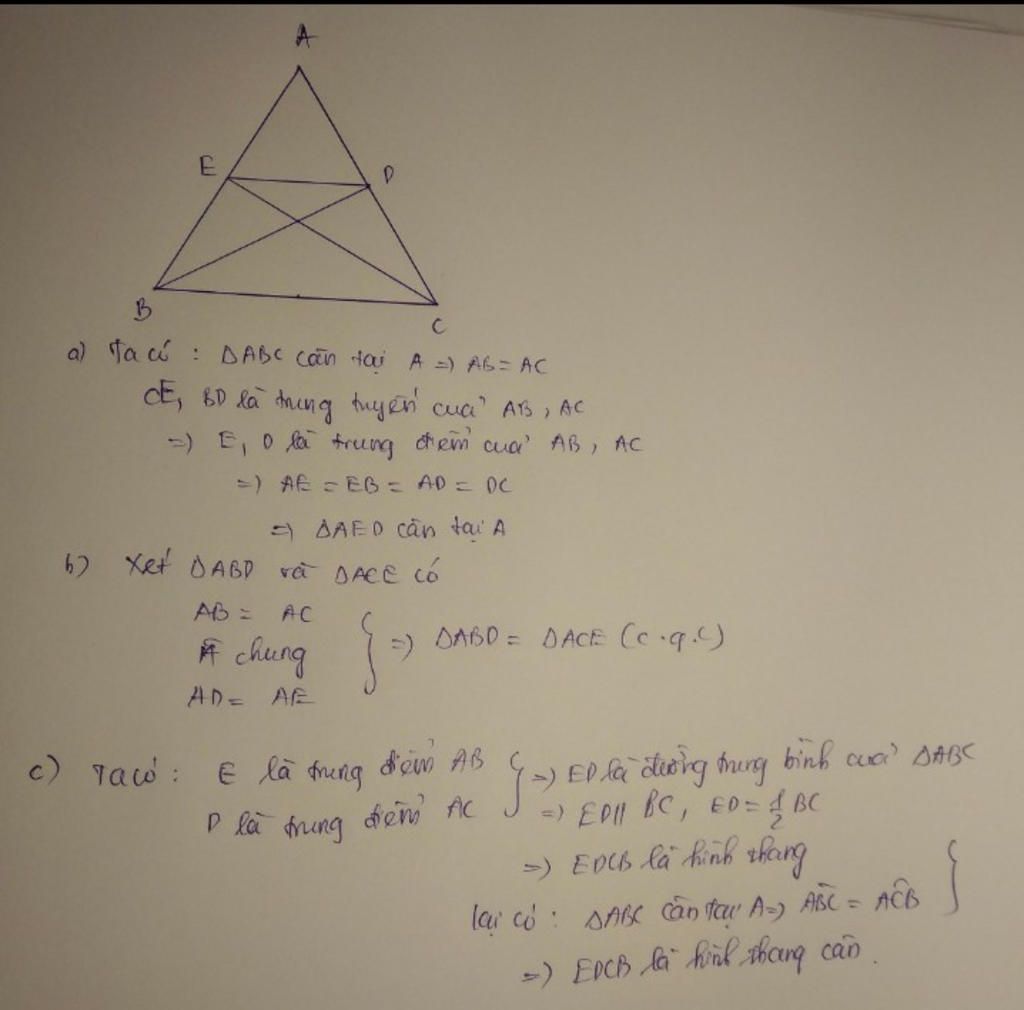 A
E
D
B
C
a) Ta có : ΔABC cân tại A => AB = AC
CE, BD là trung tuyến của AB, AC
=> E, D là trung điểm của AB, AC
=> AE = EB = AD = DC
=> ΔAED cân tại A
b) Xét ΔABD và ΔACE có
AB = AC
Â chung
AD = AE
} => ΔABD = ΔACE (c.g.c)
c) Ta có : E là trung điểm AB
D là trung điểm AC
} => ED là đường trung bình của ΔABC
=> ED // BC, ED = 1/2 BC
=> EDCB là hình thang
lại có : ΔABC cân tại A => ABC = ACB }
=> EDCB là hình thang cân.